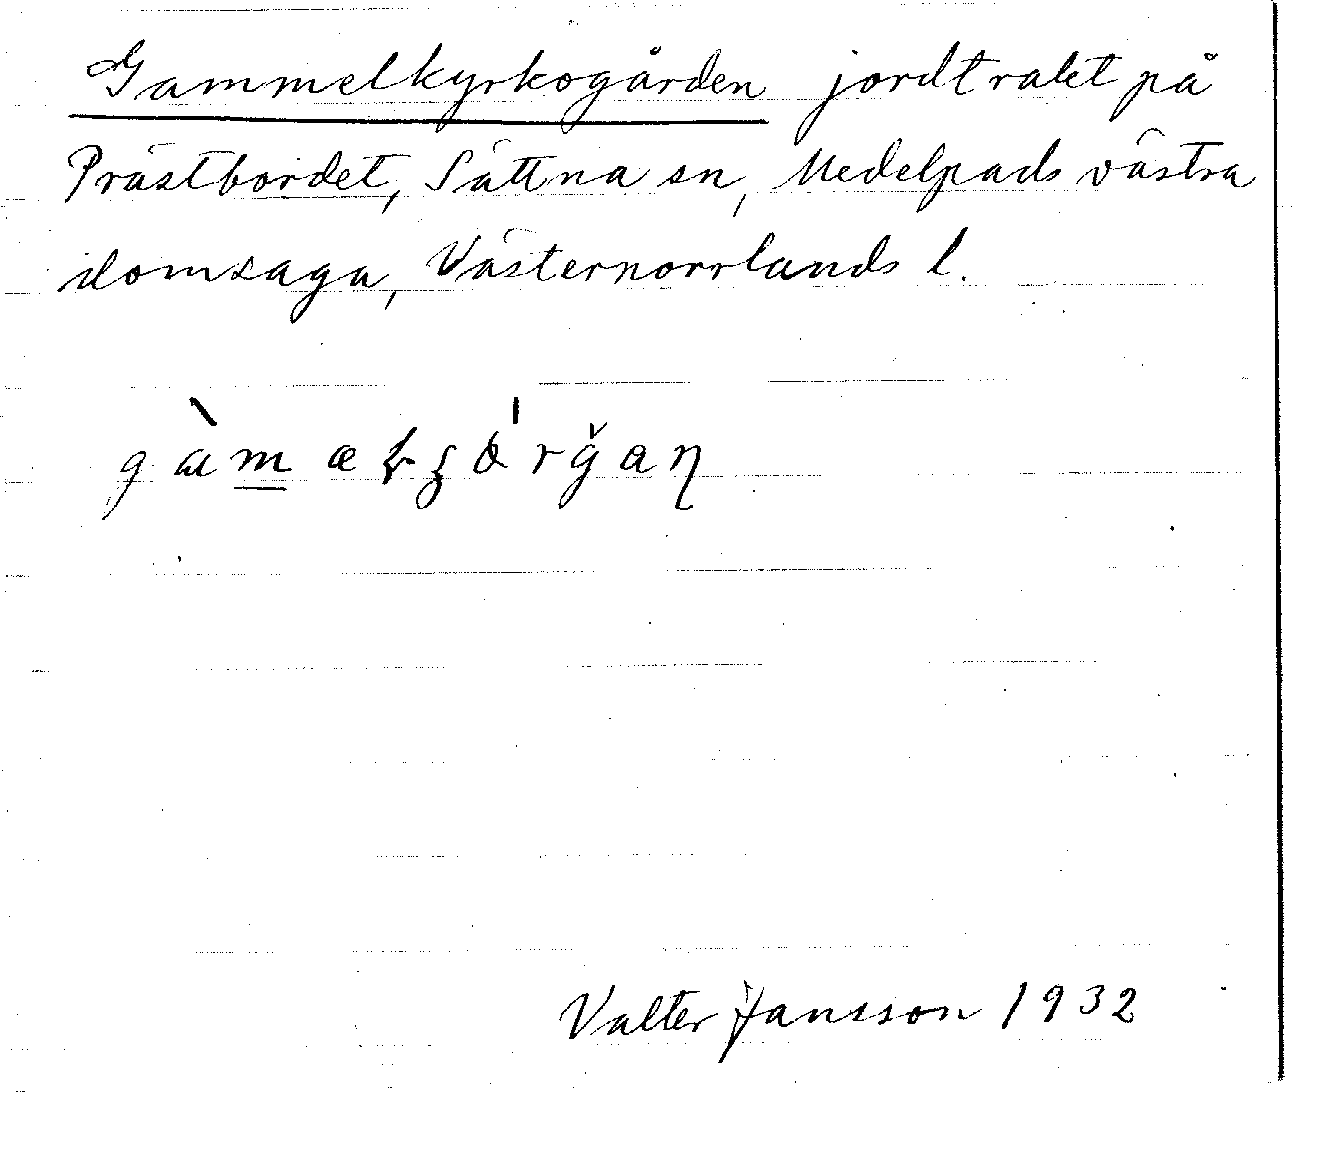 Gammelkyrkogården jordtrakt på
Prästbordet, Sättna sn, Medelpads västra
domsaga, Västernorrlands l.
Valter Jansson 1932